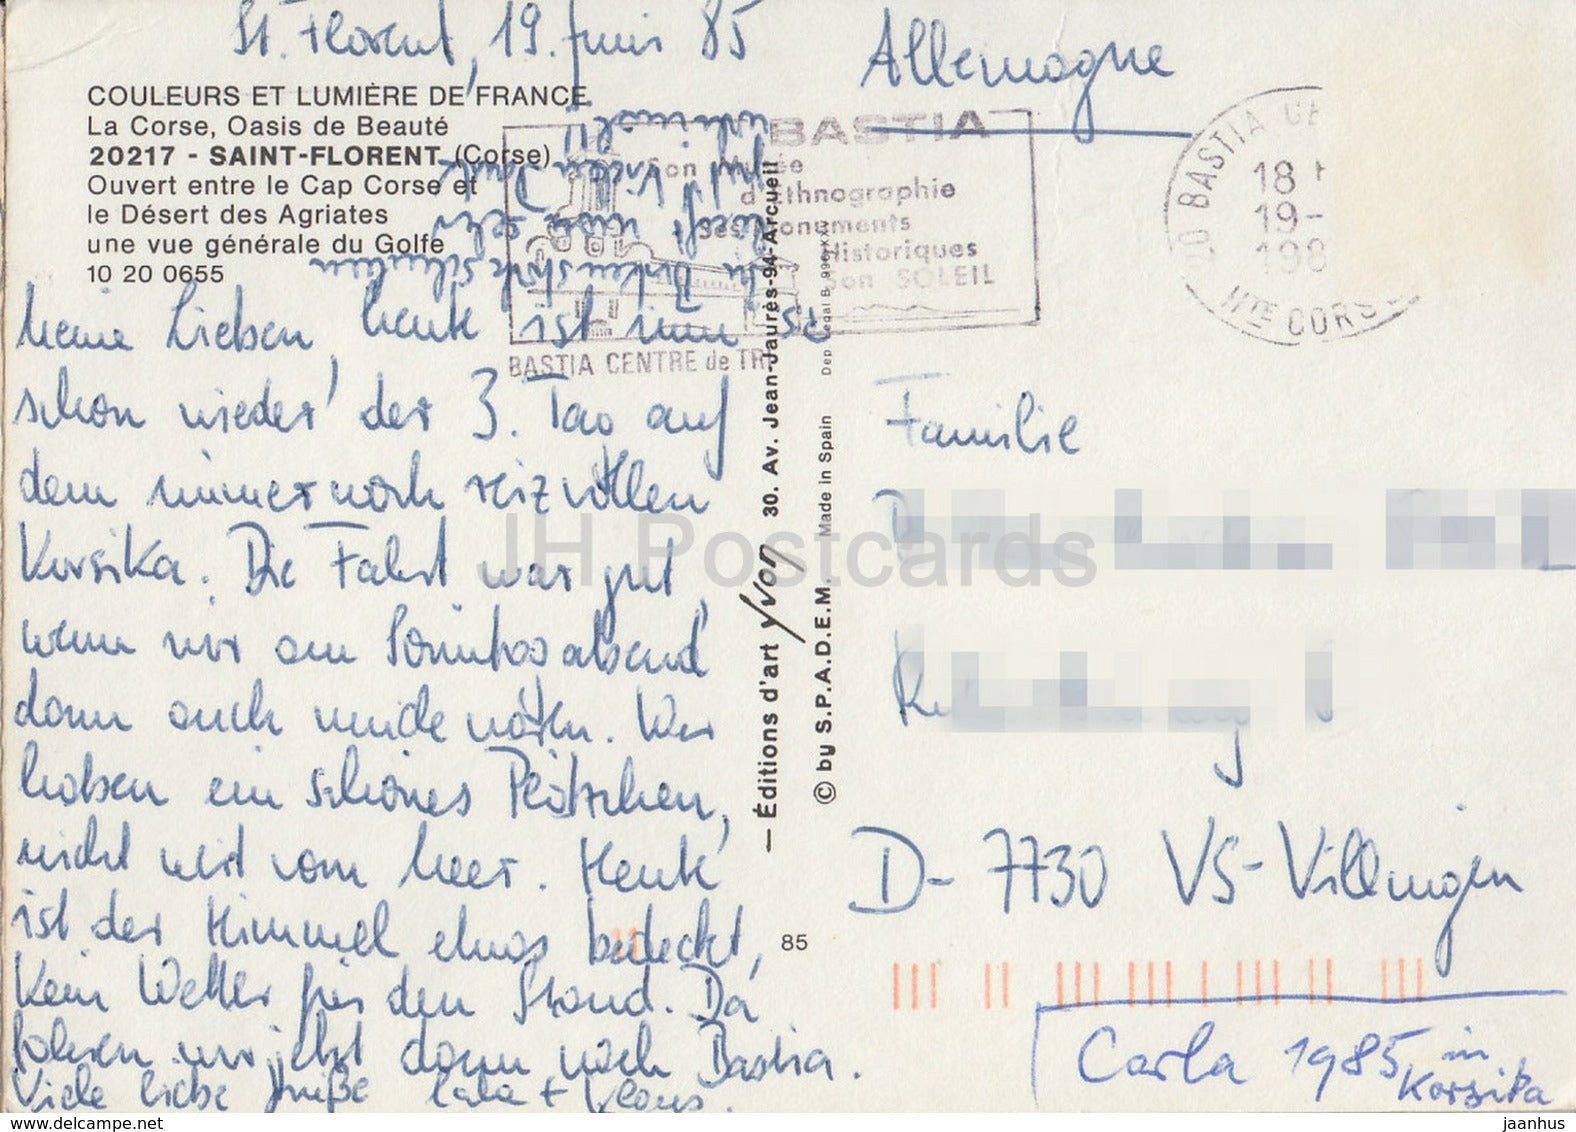 St. Florent, 19. Juni 85
COULEURS ET LUMIÈRE DE FRANCE
La Corse, Oasis de Beauté
20217 - SAINT-FLORENT (Corse)
Ouvert entre le Cap Corse et
le Désert des Agriates
une vue générale du Golfe
10 20 0655
Meine Lieben, heute ist nun
schon wieder der 3. Tag auf
dem immer noch reizvollen
Korsika. Die Fahrt war gut,
wenn wir am Sonntag abend
dann auch müde waren. Wir
haben ein schönes Plätzchen,
nicht weit vom Meer. Heute
ist der Himmel etwas bedeckt,
kein Wetter für den Strand. Da
fahren wir jetzt dann nach Bastia.
Viele liebe Grüße Carla + Klaus.
PS
in Birkenstock Schuhen
läuft man sehr
gut! Vielen Dank
nochmal!!
BASTIA
Son Musée
d'Ethnographie
Ses Monuments
Historiques
Son SOLEIL
BASTIA CENTRE de TRI
— Éditions d'art Yvon 30. Av. Jean-Jaurès-94-Arcueil
© by S.P.A.D.E.M. Made in Spain
85
Allemagne
20 BASTIA
18 H
19-
198
HTE CORSE
Familie
D-7730 VS-Villingen
Carla 1985 in
Korsika
JH Postcards
www.delcampe.net
jaanhus